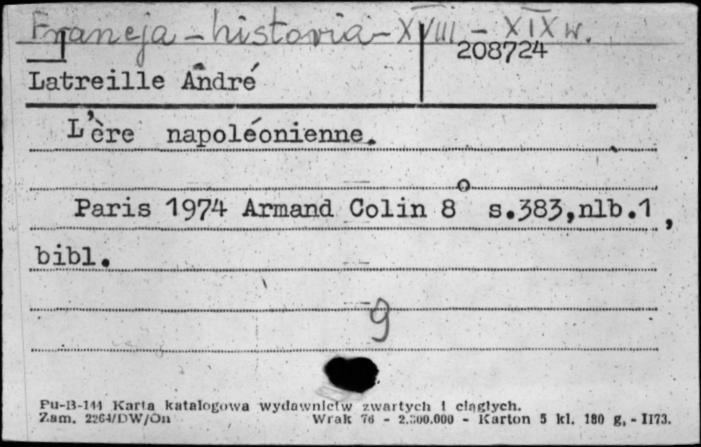 Francja - historia - XVIII - XIX w.
208724
Latreille André
L'ère napoléonienne.
Paris 1974 Armand Colin 8° s.383,nlb.1,
bibl.
9
Pu-B-144 Karta katalogowa wydawnictw zwartych i ciągłych.
Zam. 2264/DW/On Wrak 76 - 2.300.000 - Karton 5 kl. 180 g, - 1173.